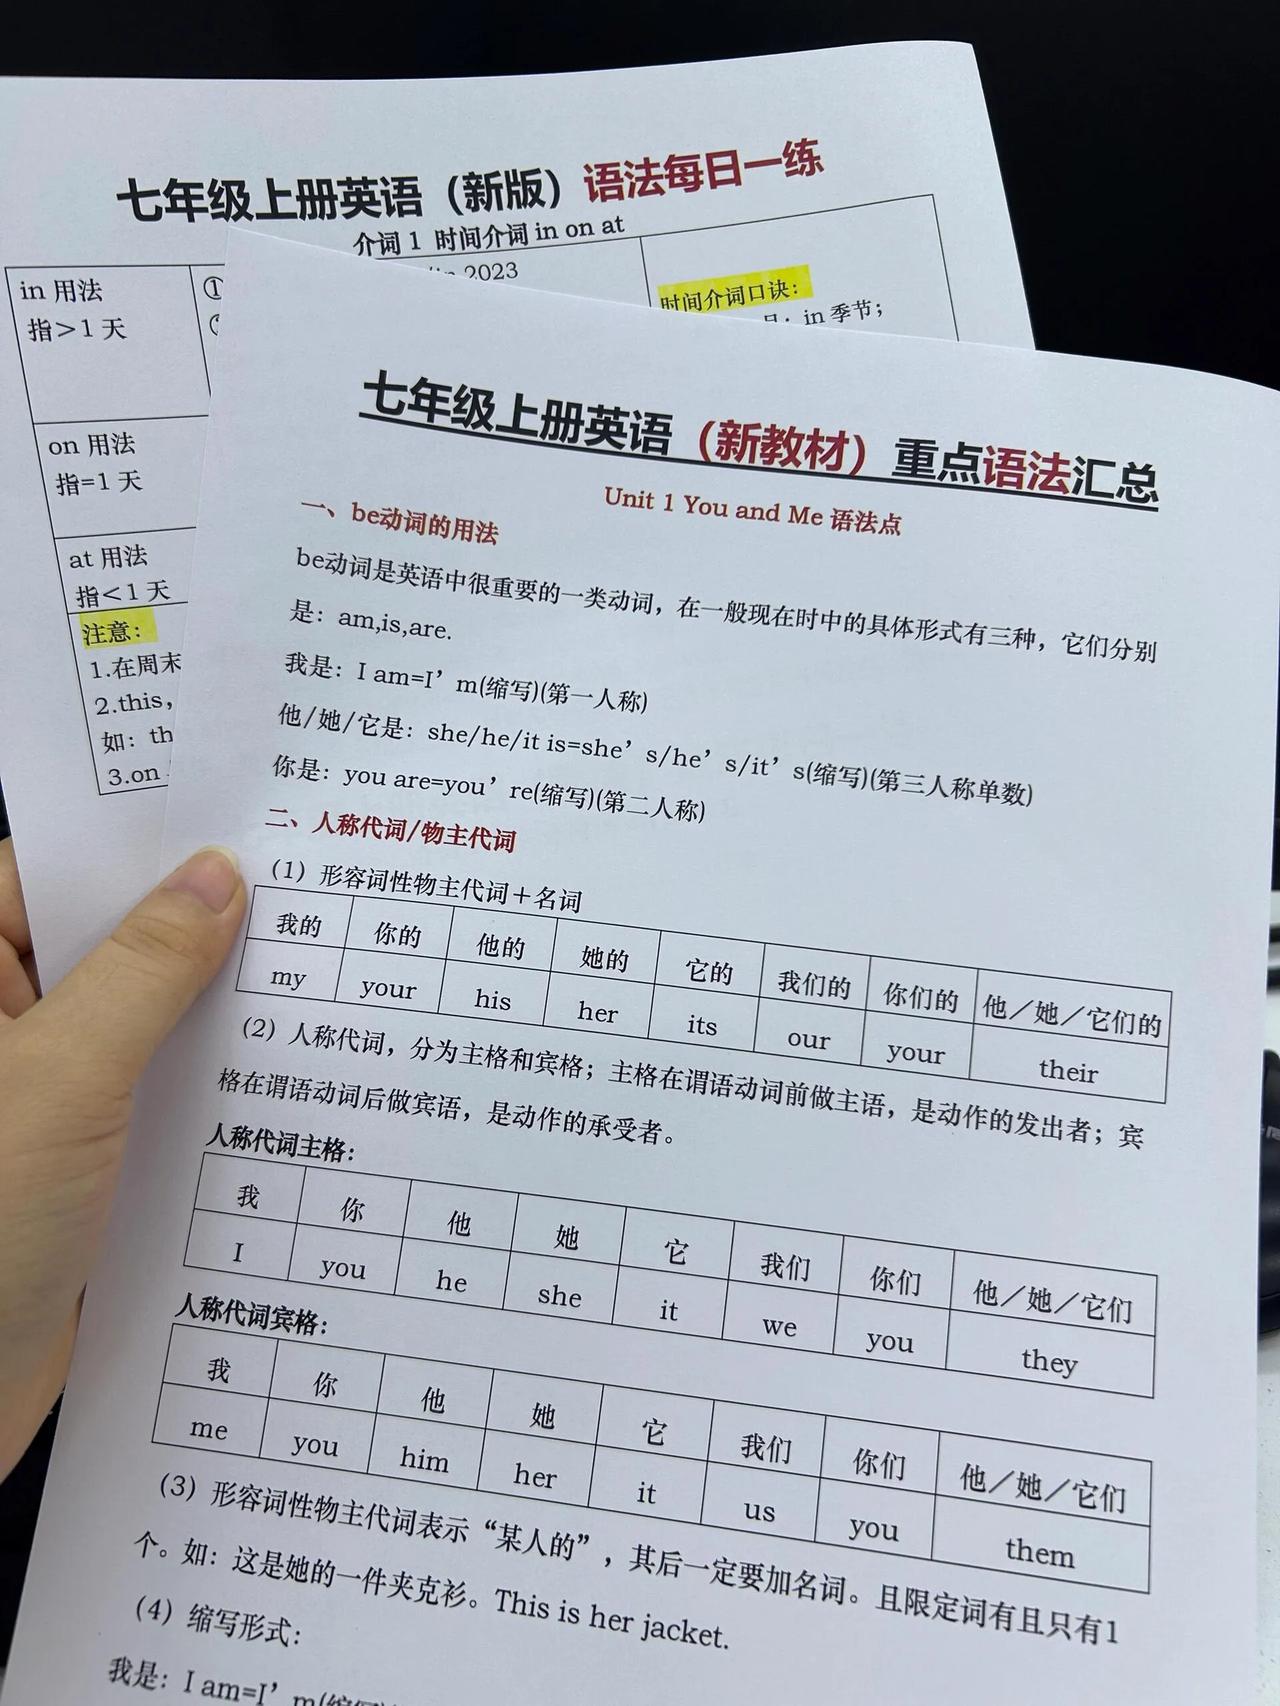 七年级上册英语（新版）语法每日一练
介词 1 时间介词 in on at
in 用法
指＞1 天
①
in 2023
时间介词口诀：
in 季节；
on 用法
指=1 天
at 用法
指＜1 天
注意：
1.在周末
2.this，
如：th
3.on
七年级上册英语（新教材）重点语法汇总
Unit 1 You and Me 语法点
一、be动词的用法
be动词是英语中很重要的一类动词，在一般现在时中的具体形式有三种，它们分别
是：am,is,are.
我是：I am=I’m(缩写)(第一人称)
他/她/它是：she/he/it is=she’s/he’s/it’s(缩写)(第三人称单数)
你是：you are=you’re(缩写)(第二人称)
二、人称代词/物主代词
（1）形容词性物主代词＋名词
我的 你的 他的 她的 它的 我们的 你们的 他／她／它们的
my your his her its our your their
（2）人称代词，分为主格和宾格；主格在谓语动词前做主语，是动作的发出者；宾
格在谓语动词后做宾语，是动作的承受者。
人称代词主格：
我 你 他 她 它 我们 你们 他／她／它们
I you he she it we you they
人称代词宾格：
我 你 他 她 它 我们 你们 他／她／它们
me you him her it us you them
（3）形容词性物主代词表示“某人的”，其后一定要加名词。且限定词有且只有1
个。如：这是她的一件夹克衫。This is her jacket.
（4）缩写形式：
我是：I am=I’m(缩写)